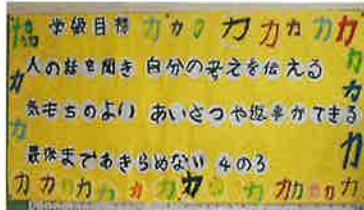 学級目標 カカカカカカカカ
人の話を聞き 自分の考えを伝える
気もちのよい あいさつや返事ができる
最後まであきらめない 4の3
カカカカカカカカカカカカカ